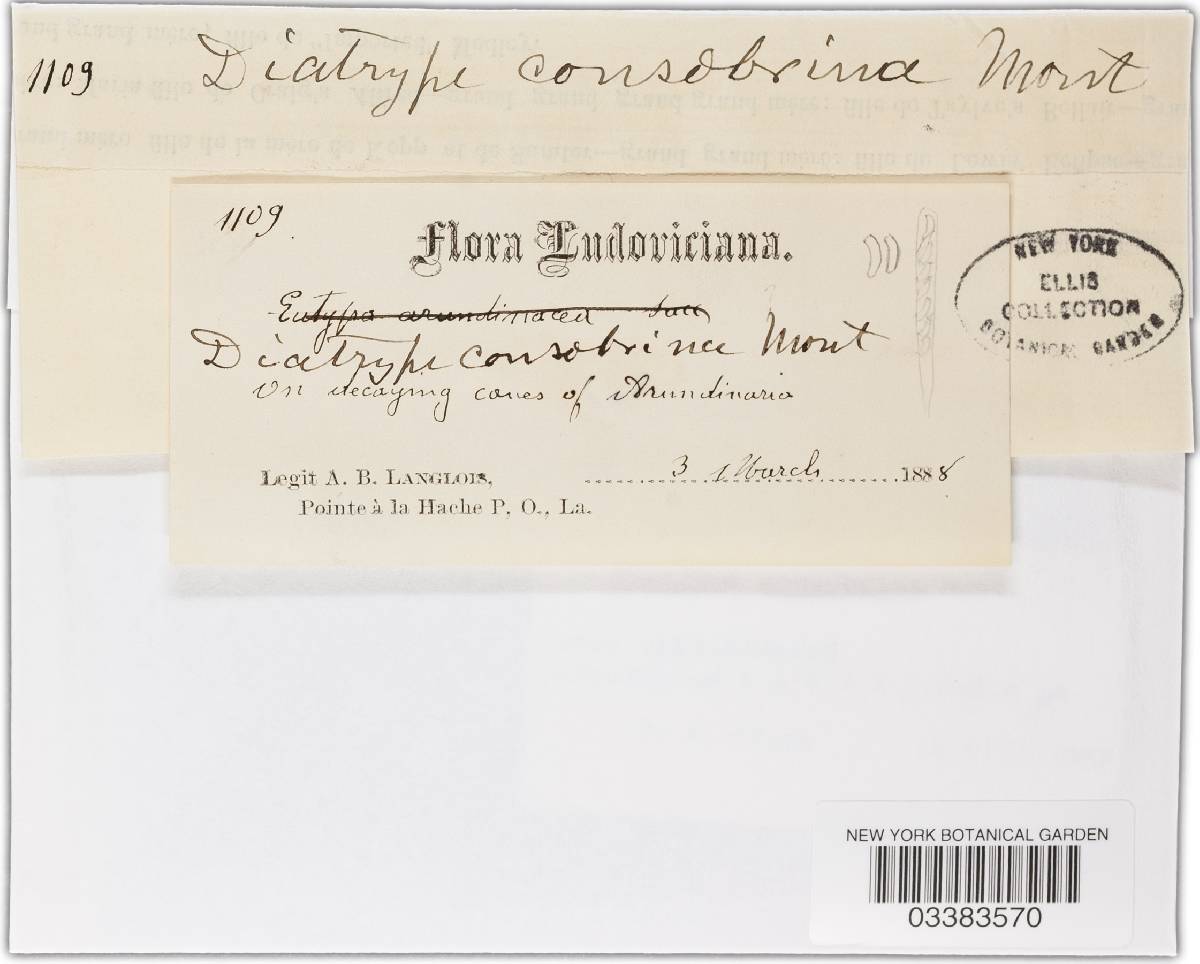 1109 Diatrype consobrina Mont
1109
Flora Ludoviciana.
Eutypa arundinacea Sacc
Diatrype consobrina Mont
On decaying canes of Arundinaria
Legit A. B. LANGLOIS, 3 March 1888
Pointe à la Hache P. O., La.
NEW YORK
ELLIS
COLLECTION
BOTANICAL GARDEN
NEW YORK BOTANICAL GARDEN
03383570